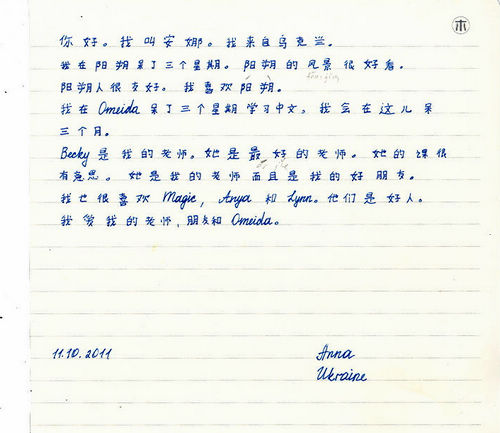 木
你好。我叫安娜。我来自乌克兰。
我在阳朔呆了三个星期。阳朔的风景很好看。
阳朔人很友好。我喜欢阳朔。
我在 Omeida 呆了三个星期学习中文，我会在这儿呆
三个月。
Becky 是我的老师。她是最好的老师。她的课很
有意思。她是我的老师而且是我的好朋友。
我也很喜欢 Magie, Anya 和 Lynn. 他们是好人。
我爱我的老师，朋友和 Omeida。
11.10.2011
Anna
Ukraine